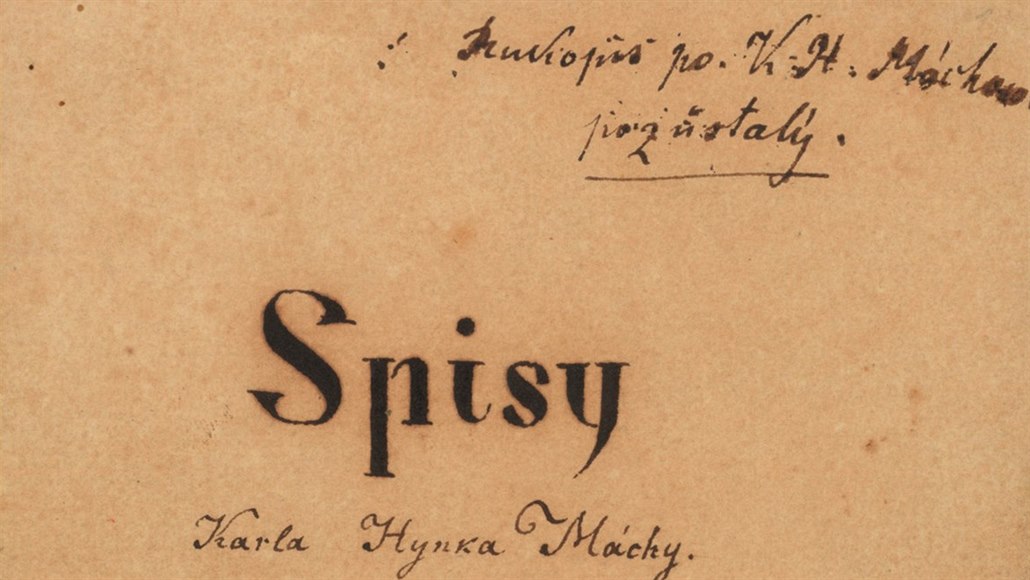 Rukopis po. K. H. Máchow
pozůstalý.
Spisy
Karla Hynka Máchy.